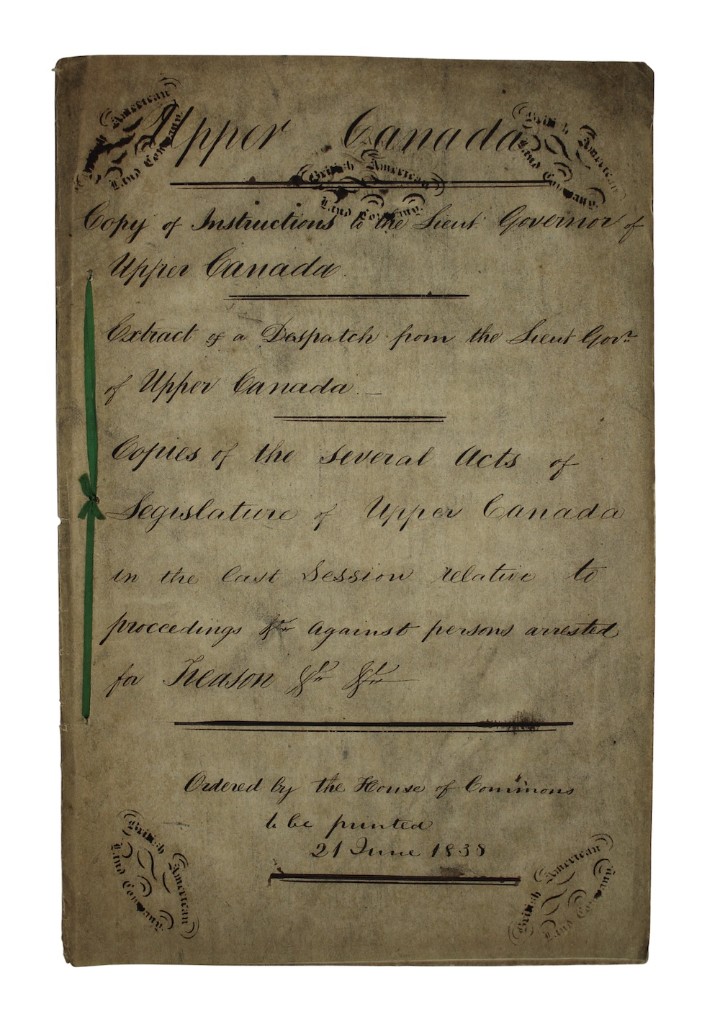 British American
Land Company
Upper Canada
British American
Land Company
British American
Land Company
Copy of Instructions to the Lieut Governor of
Upper Canada.
Extract of a Despatch from the Lieut Govr
of Upper Canada. —
Copies of the several Acts of
Legislature of Upper Canada
in the last Session relative to
proceedings &c against persons arrested
for Treason &c &c
Ordered by the House of Commons
to be printed
21 June 1838
British American
Land Company
British American
Land Company